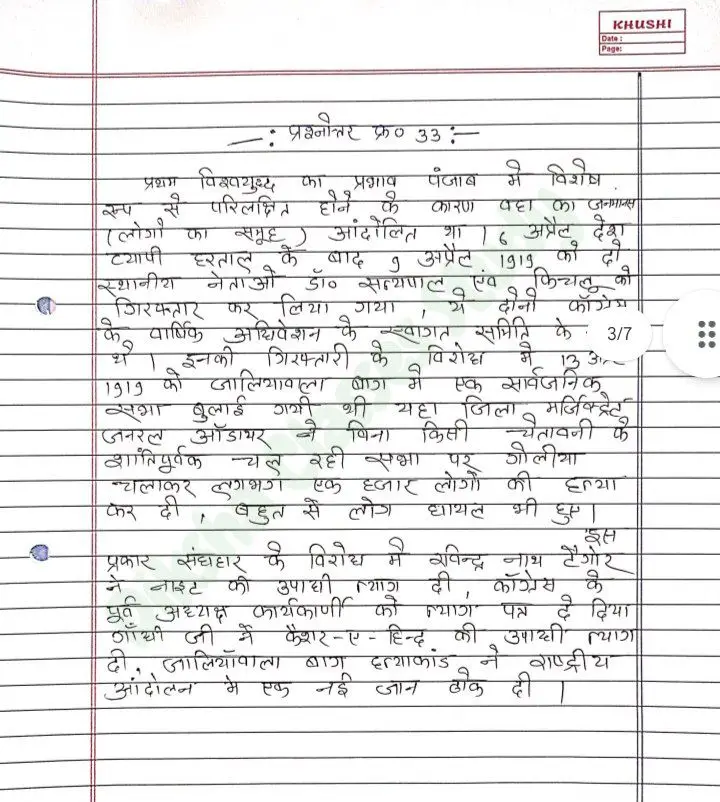 KHUSHI
Date :
Page:
—: प्रश्नोत्तर क्र० 33:—
प्रथम विश्वयुध्द का प्रभाव पंजाब मे विशेष
रूप से परिलक्षित होने के कारण वहा का जनमानस
(लोगो का समूह) आंदोलित था । 6 अप्रैल देश
व्यापी हरताल के बाद 9 अप्रैल 1919 को दो
स्थानीय नेताओ डॉ० सत्यपाल एंव किचलू को
गिरफ्तार कर लिया गया , ये दोनो कॉग्रेस
के वार्षिक अधिवेशन के स्वागत समिति के
3/7
थे । इनकी गिरफ्तारी के विरोध मे 13
1919 को जालियावाला बाग मे एक सार्वजनिक
सभा बुलाई गयी थी यहा जिला मर्जिस्ट्रेट
जनरल ऑडायर ने बिना किसी चेतावनी के
शांतिपूर्वक चल रही सभा पर गोलीया
चलाकर लगभग एक हजार लोगो की हत्या
कर दी , बहुत से लोग घायल भी हुए ।
इस
प्रकार संघहार के विरोध मे रविन्द्र नाथ टैगोर
ने नाइट की उपाधी त्याग दी , कॉग्रेस के
पूर्व अध्यक्ष कार्यकार्णी को त्याग पत्र दे दिया
गाँधी जी ने कैशर-ए-हिन्द की उपाधी त्याग
दी , जालियाँवाला बाग हत्याकांड ने राष्ट्रीय
आंदोलन मे एक नई जान ठोक दी ।